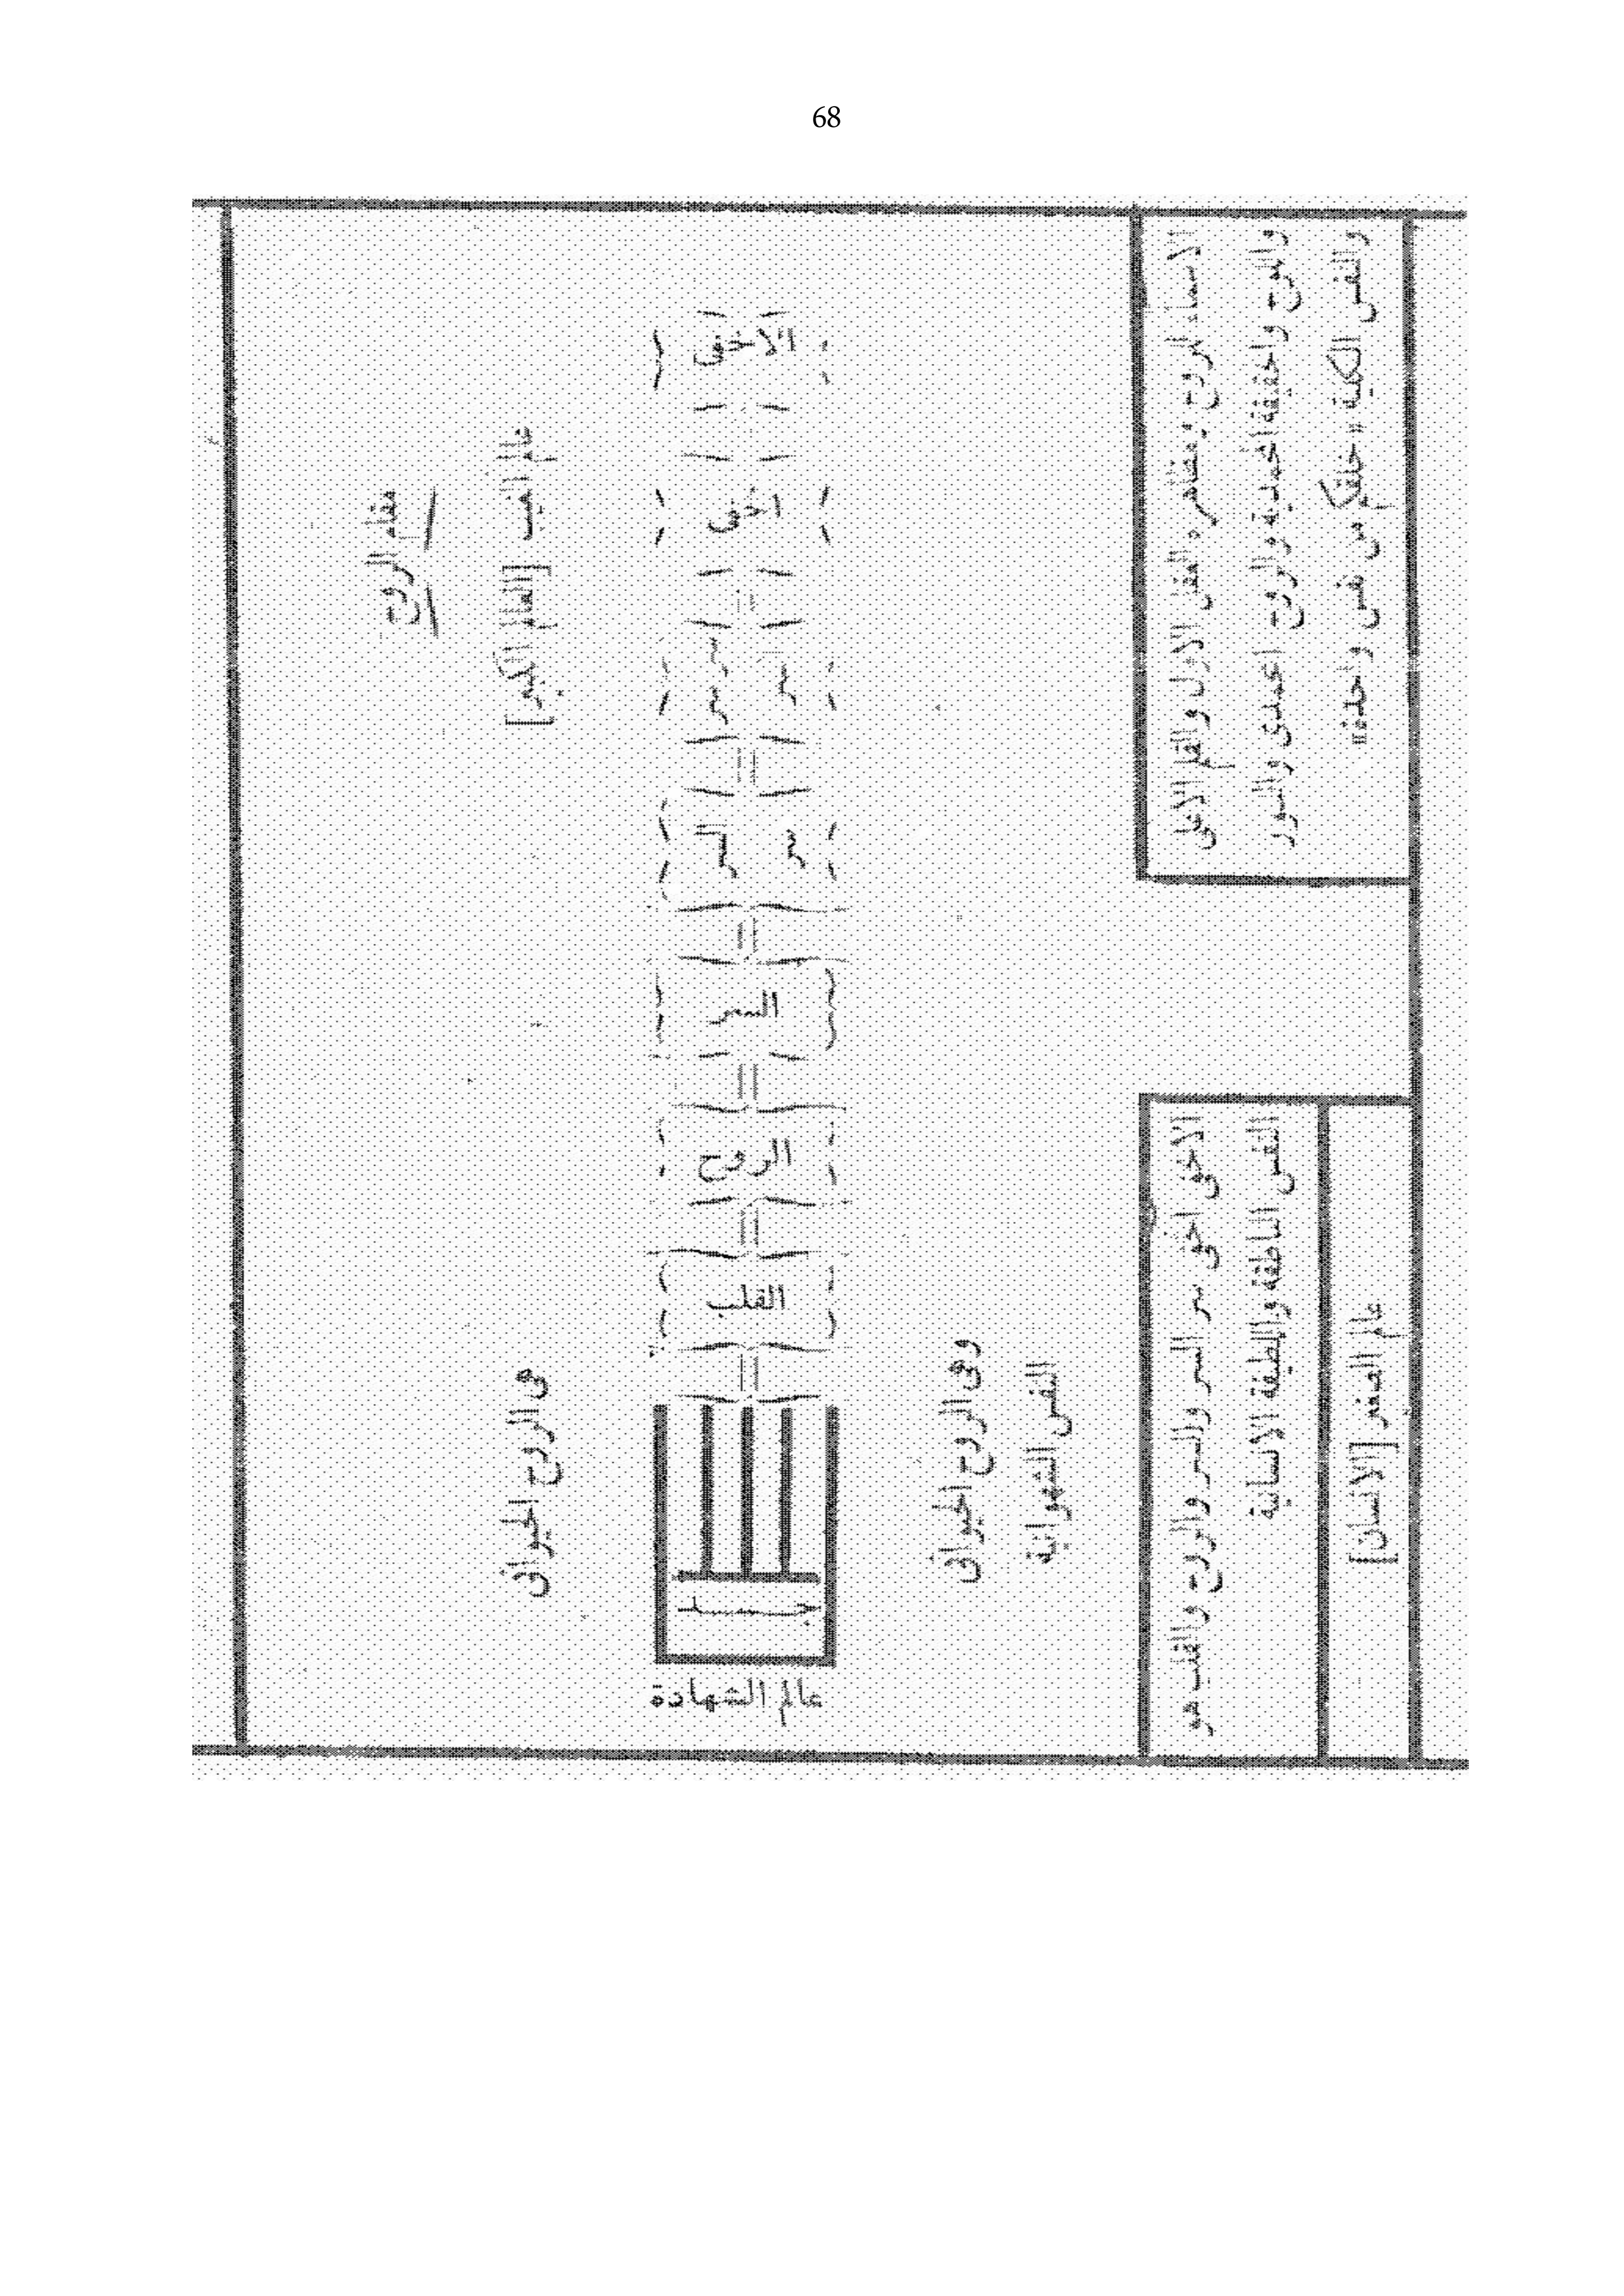 68
مقام الروح
عالم الغيب [العالم الكبير]
الأخفى
اخفى
سر
السر
الروح
القلب
جسد
عالم الشهادة
هى الروح الحيوانى
وهى الروح الحيوانى
النفس الشهوانية
الاسماء للروح ومظاهره العقل الاول والقلم الاعلى
واللوح والحقيقة المحمدية والروح المحمدى والنور
والنفس الكلية «خلقكم من نفس واحدة»
الاخفى اخفى سر السر والسر والروح والقلب هو
النفس الناطقة واللطيفة الانسانية
عالم الصغير [الانسان]